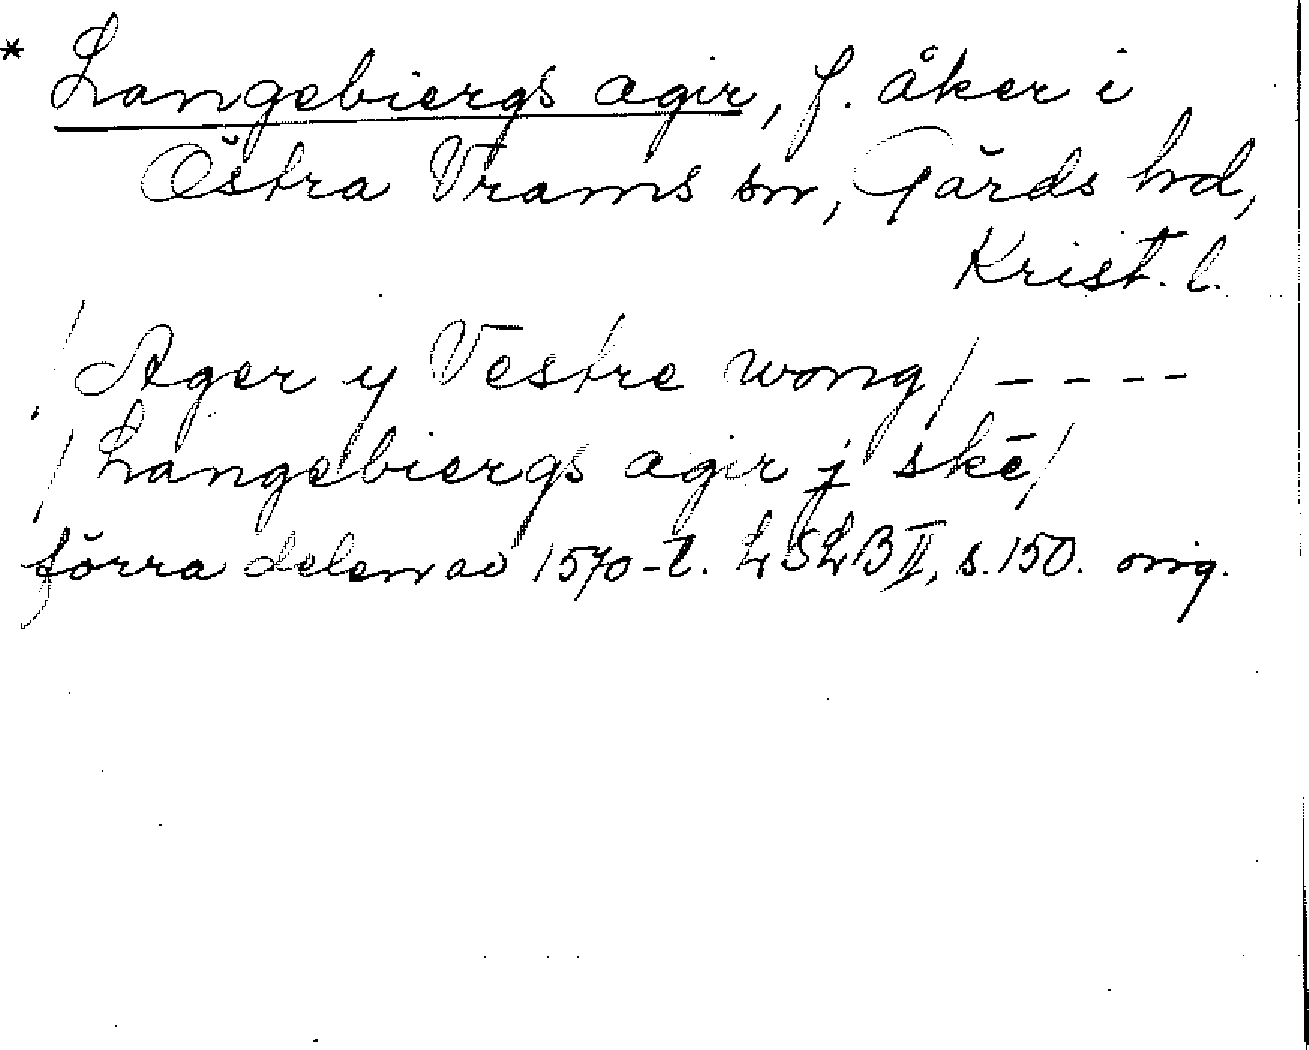 * Langebiergs agir, f. åker i
Östra Vrams sn, Gärds hd,
Krist. l.
/ Ager y Vestre wong / - - - -
/ Langebiergs agir j skē /
förra delen av 1570-t. LSLB II, s. 150. orig.